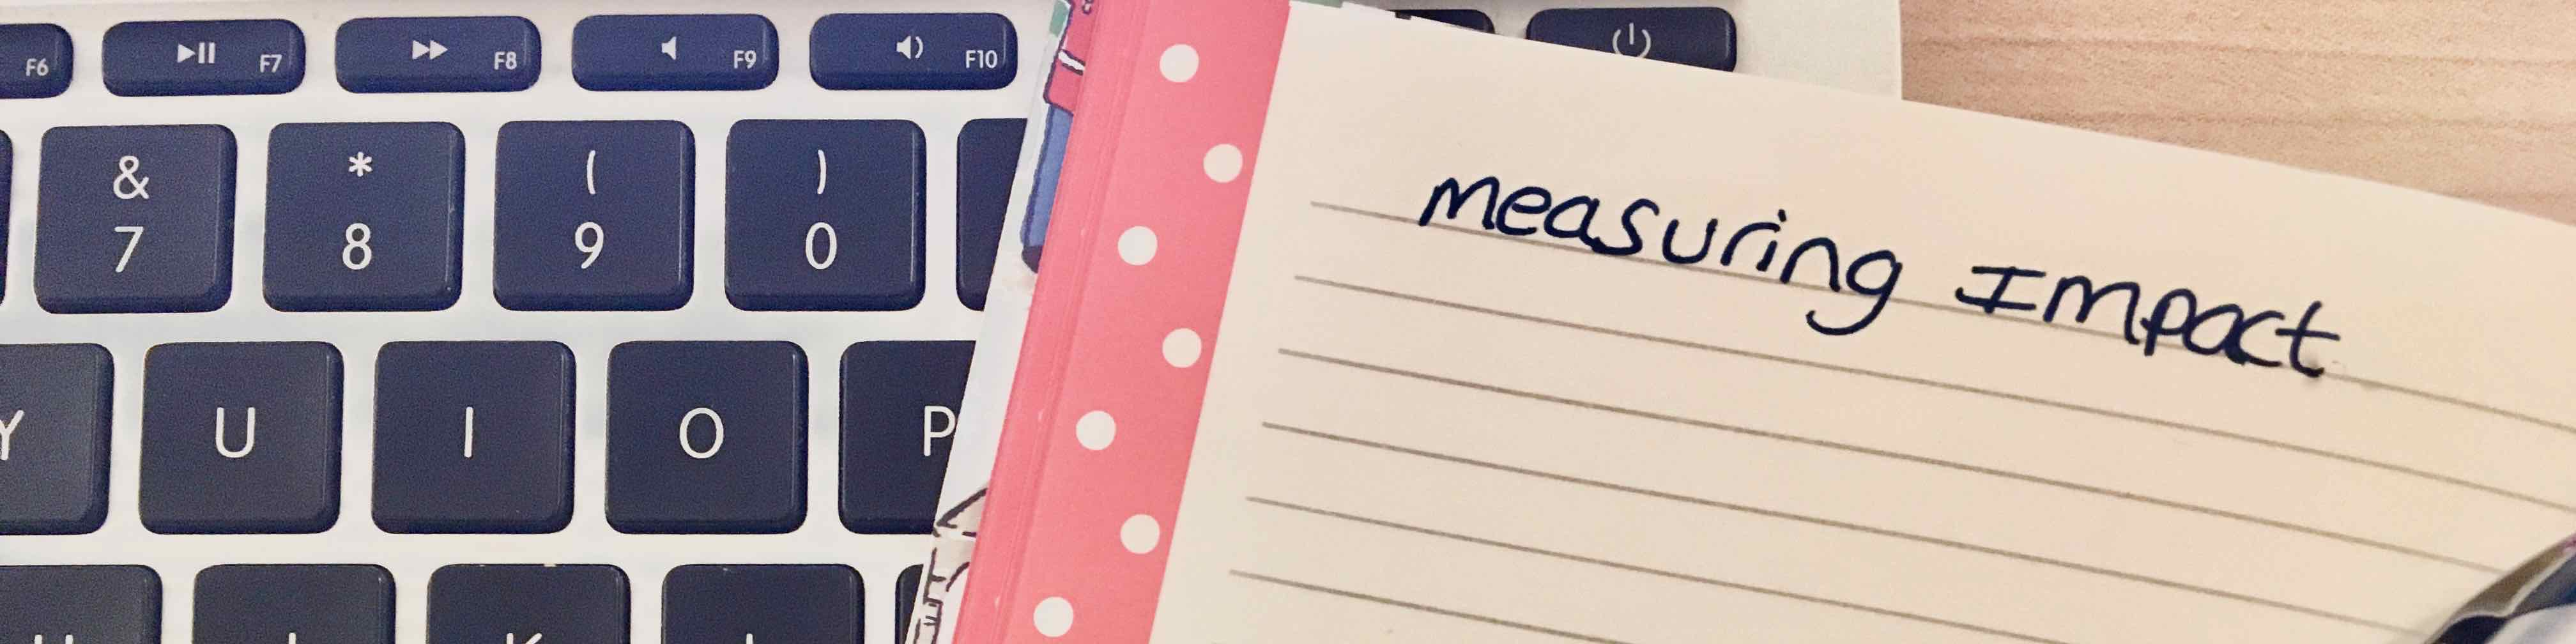 F6 F7 F8 F9 F10
& * ( )
7 8 9 0
Y U I O P
K
measuring Impact